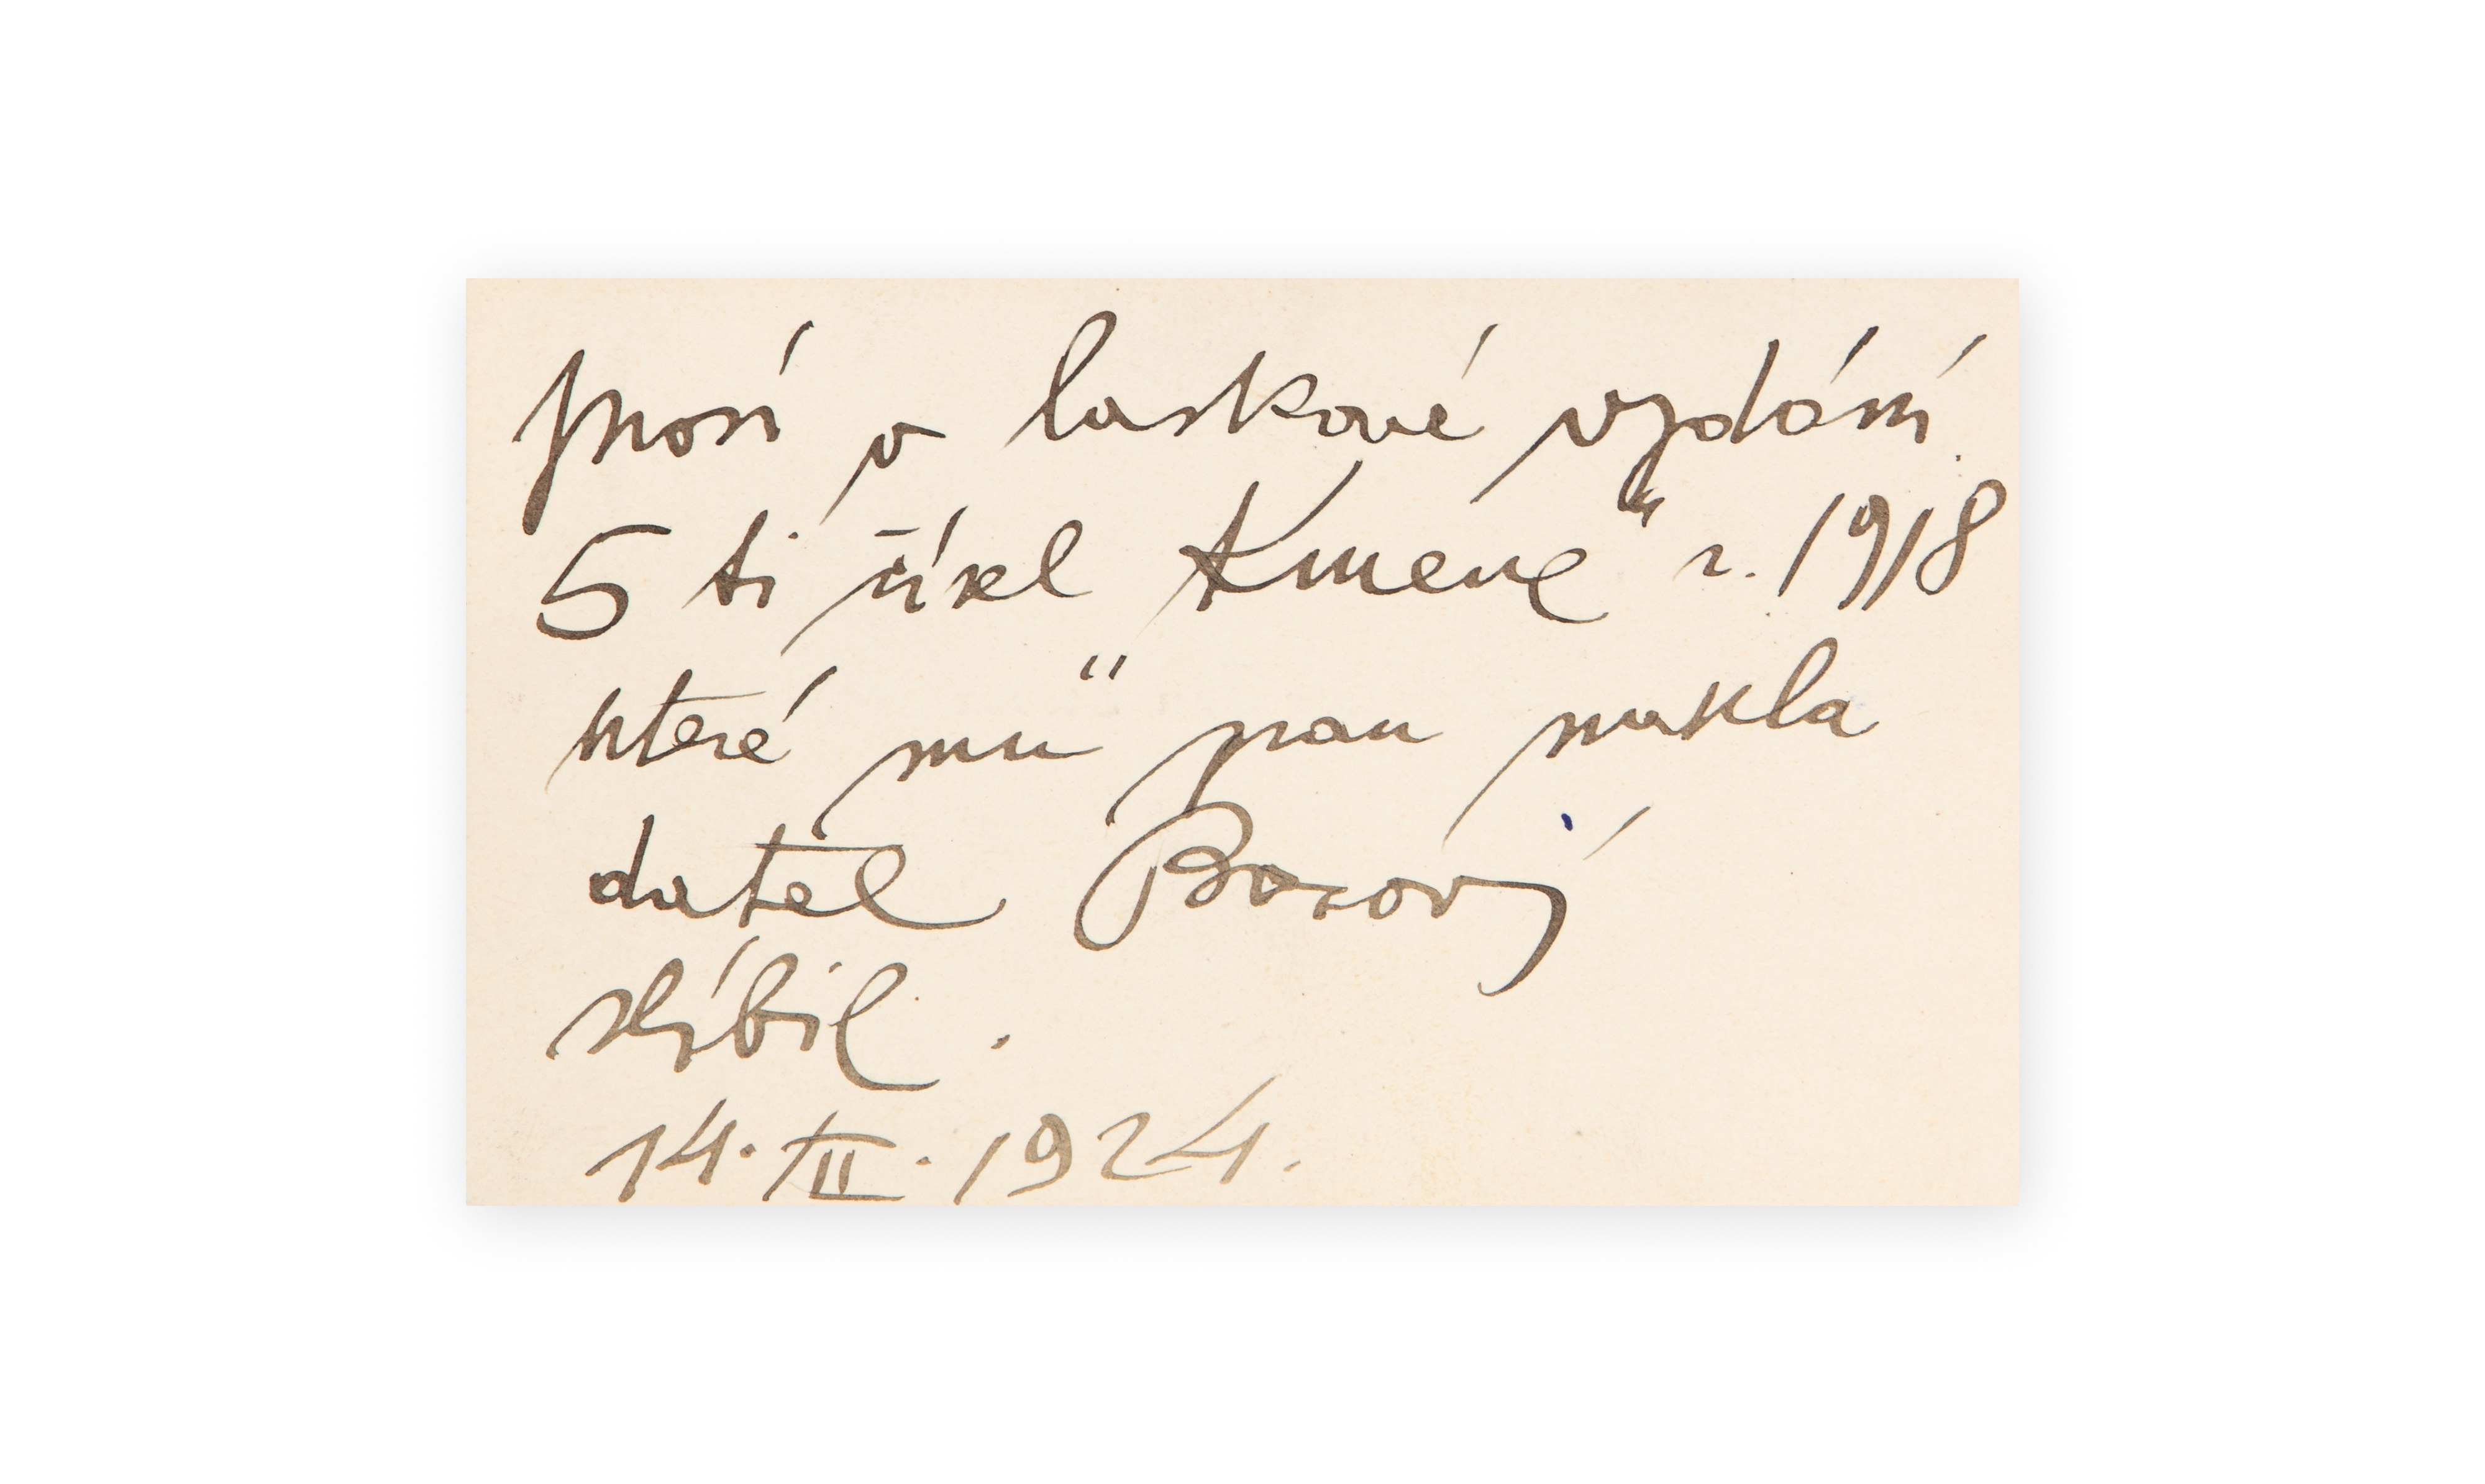 prosí o laskavé vydání
5 ti čísel „Kmene“ r. 1918
které mu pan nakla
datel Borový
slíbil.
14. III. 1924.